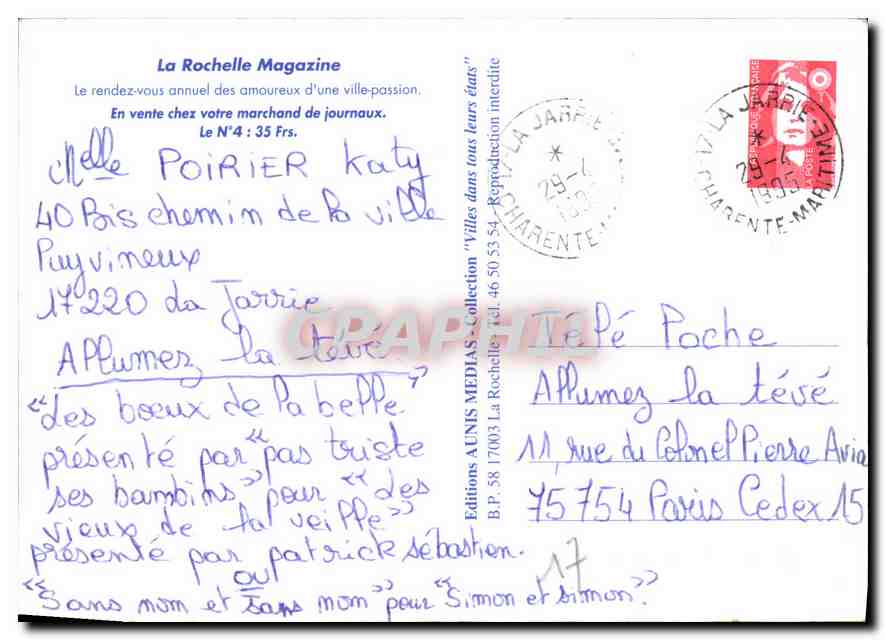 La Rochelle Magazine
Le rendez-vous annuel des amoureux d'une ville-passion.
En vente chez votre marchand de journaux.
Le N°4 : 35 Frs.
Melle POIRIER Katy
40 Bis chemin de la ville
Puyvineux
17220 La Jarrie
Allumez la tévé
"des bœux de la belle"
présenté par "pas triste
ses bambins" pour "des
vieux de la veille"
présenté par patrick sébastien.
ou
"Sans nom et sans nom" pour "Simon et simon".
Editions AUNIS MEDIAS - Collection "Villes dans tous leurs états"
B.P. 58 17003 La Rochelle - Tel. 46 50 53 54 - Reproduction interdite
17-LA JARRIE
*
29-4
CHARENTE-
17-LA JARRIE
*
29-4
1995
CHARENTE-MARITIME
LA POSTE
Télé Poche
Allumez la tévé
11, rue du Colonel Pierre Avia
75754 Paris Cedex 15
17
CPAPHIL